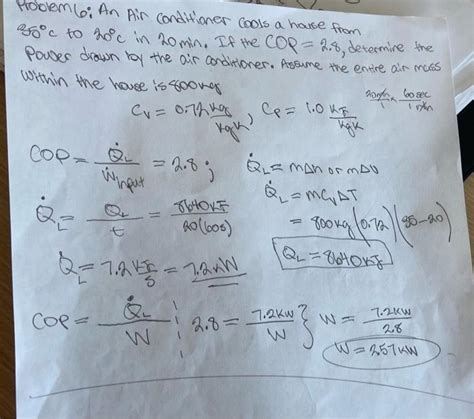 Problem 6: An Air conditioner cools a house from
35°c to 20°c in 20min. If the COP = 2.8, determine the
Power drawn by the air conditioner. Assume the entire air mass
within the house is 800kg
Cv = 0.72 kJ/kgK, Cp = 1.0 kJ/kgK 20min/1 x 60sec/1min
COP = Q̇L/Ẇinput = 2.8; Q̇L = mΔh or mΔU
Q̇L = mCvΔT
Q̇L = QL/t = 8640kJ/20(60s) = 800kg(0.72)(35-20)
QL = 8640kJ
Q̇L = 7.2 kJ/s = 7.2kW
COP = Q̇L/W 2.8 = 7.2kW/W } W = 7.2kW/2.8
W = 2.57kW